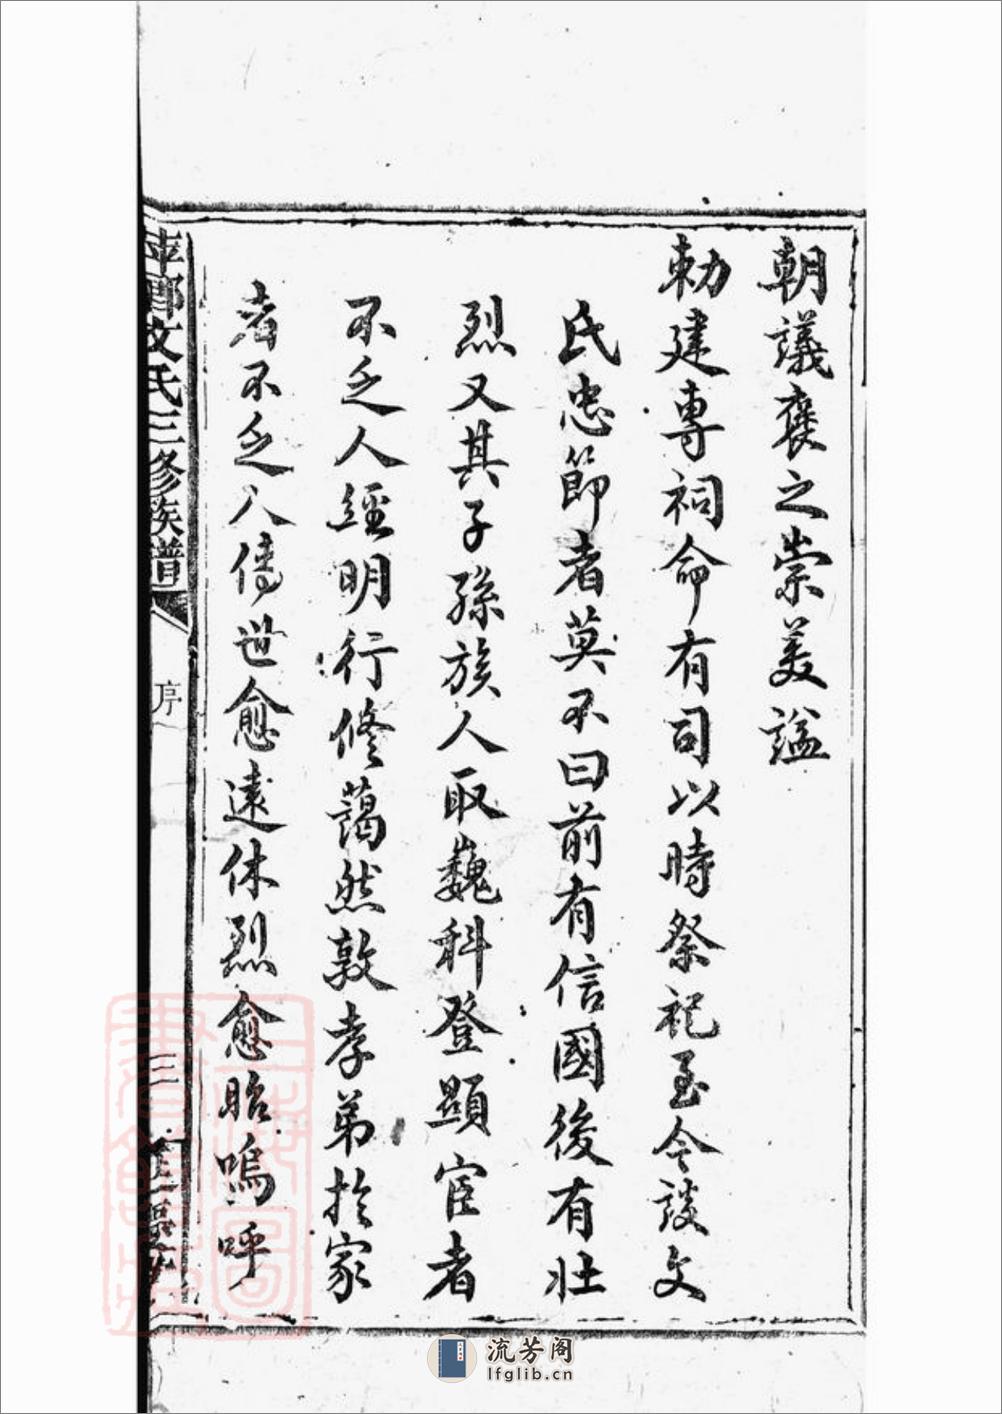 朝議襃之崇美謚
勅建專祠命有司以時祭祀至今談文
氏忠節者莫不曰前有信國後有壯
烈又其子孫族人取巍科登顯宦者
不乏人經明行修藹然敦孝弟於家
者不乏人傳世愈遠休烈愈昭嗚呼
萍鄉文氏三修族譜
序
三
流芳阁
lfglib.cn